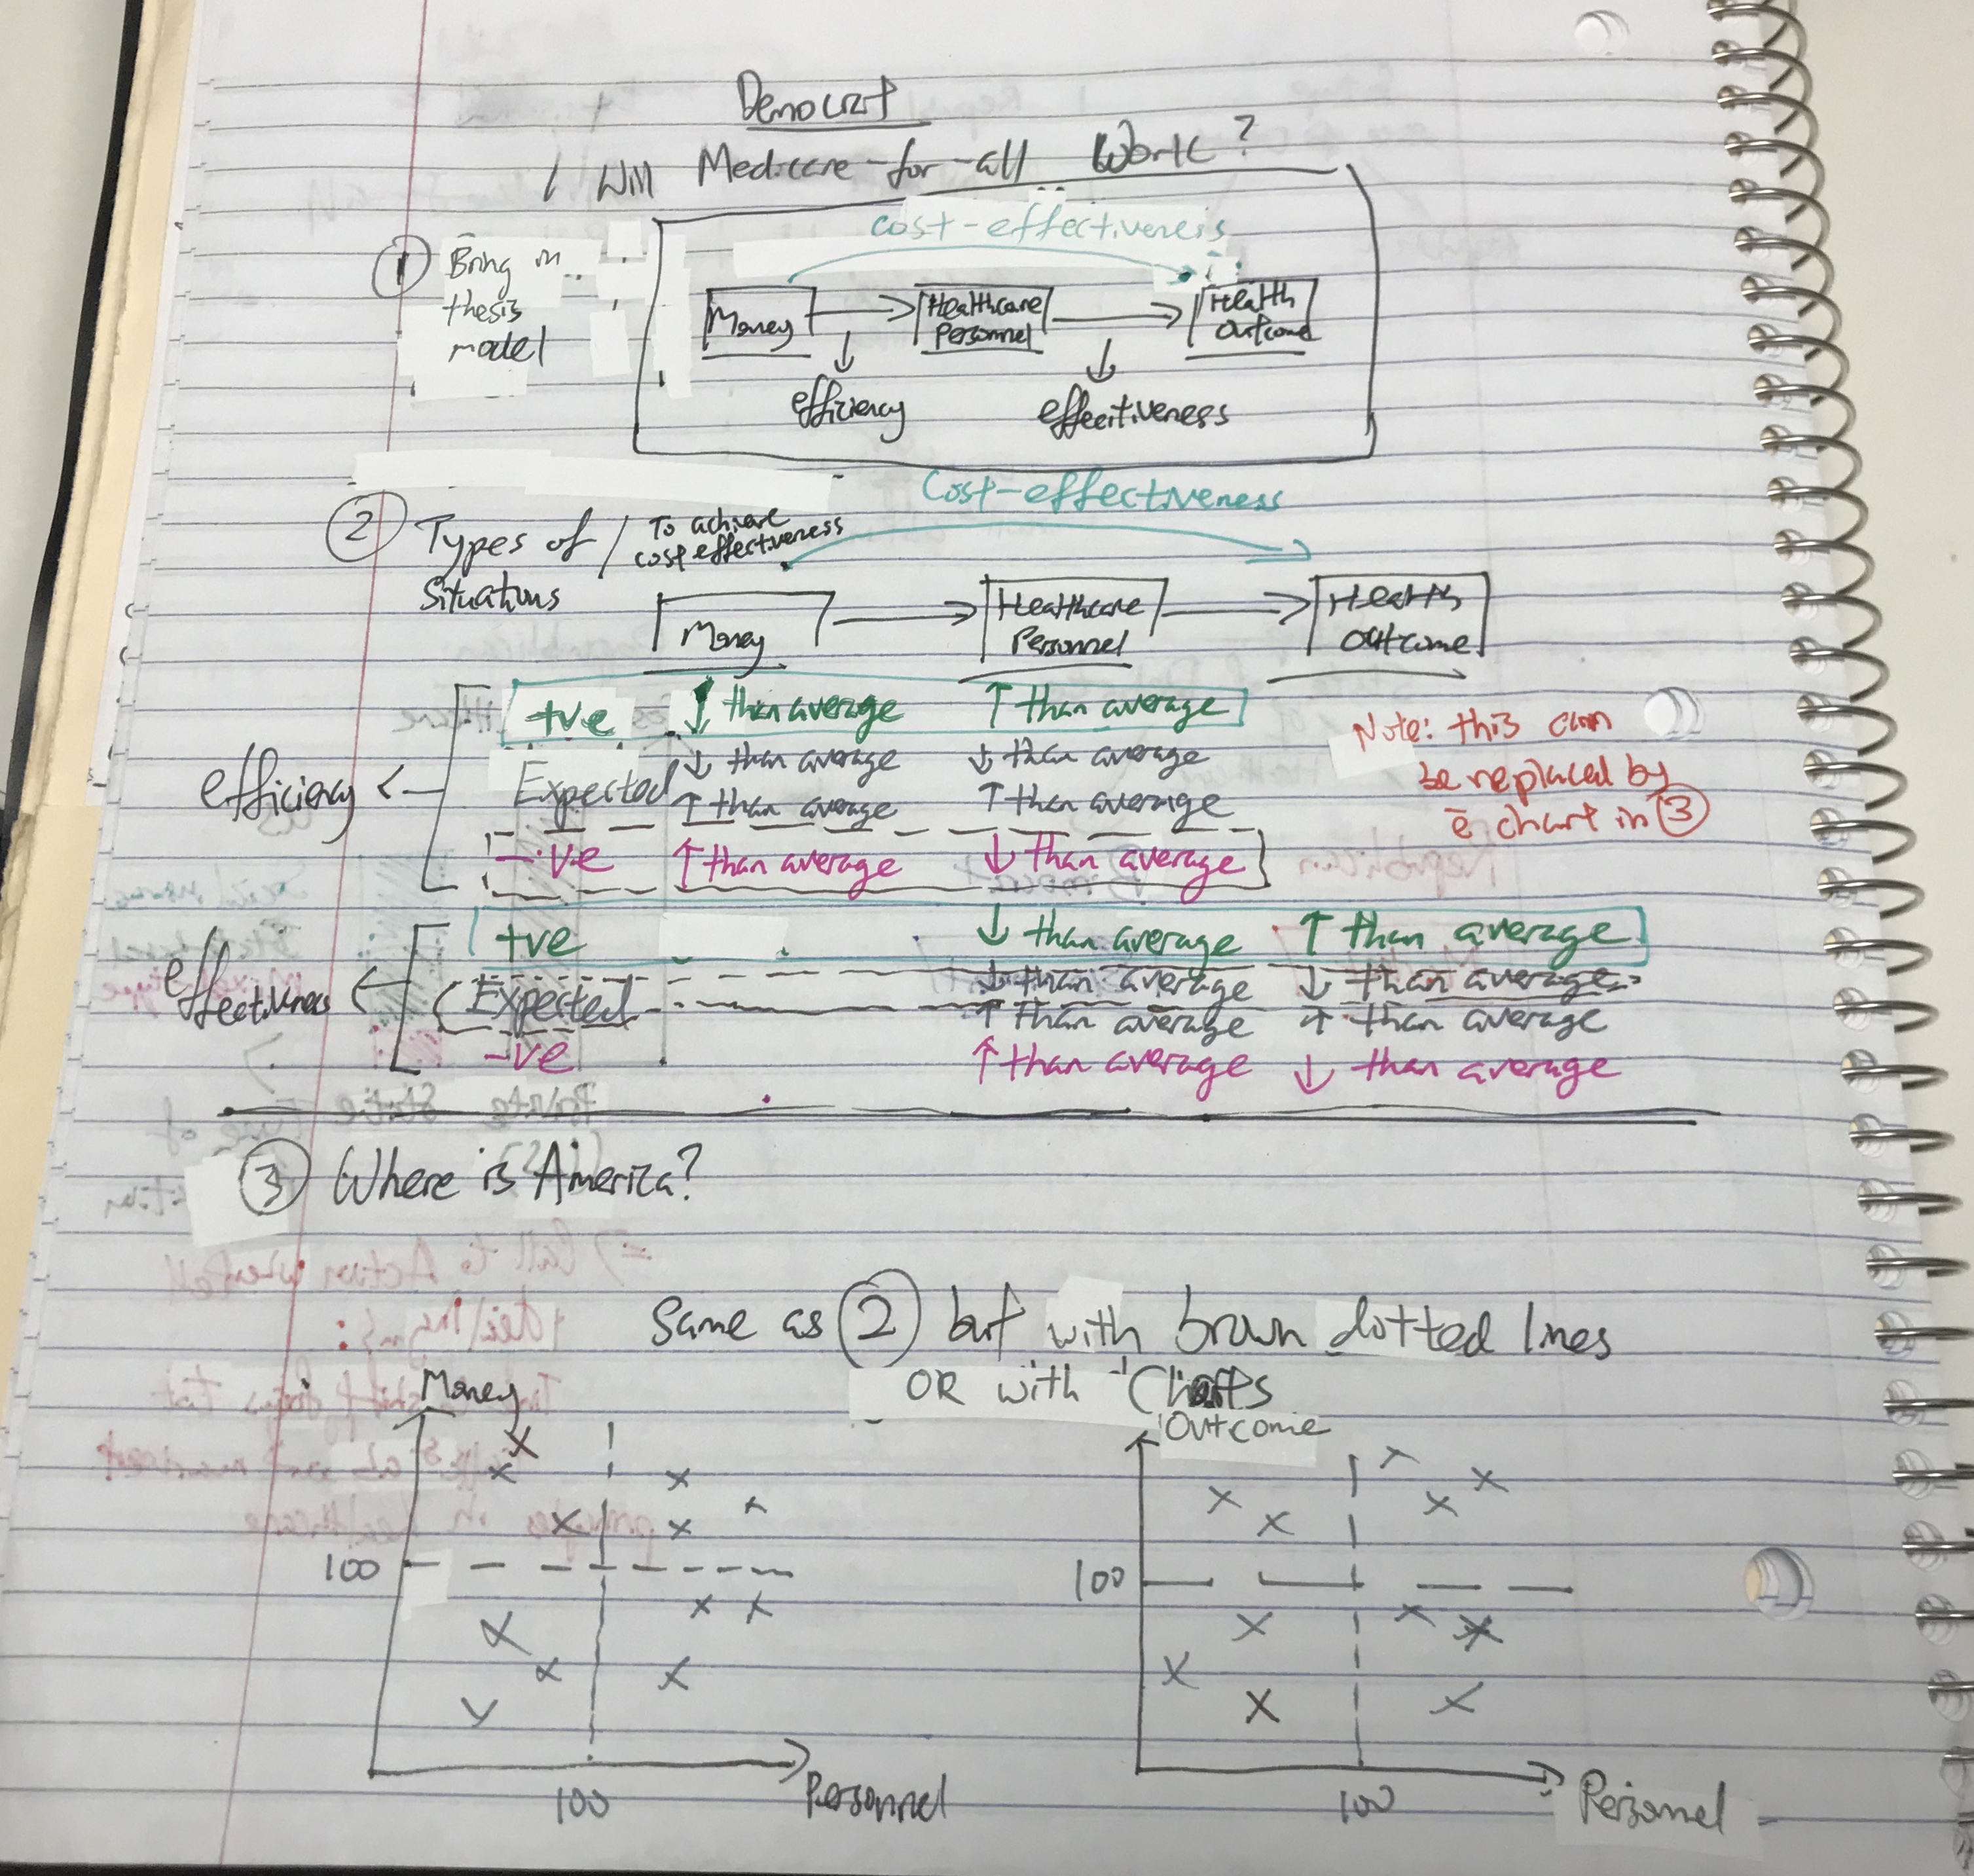 Democrat
/ Will Medicare-for-all Work?
① Bring in
thesis
model
cost-effectiveness
Money
Healthcare
Personnel
Health
Outcome
efficiency
effectiveness
Cost-effectiveness
② Types of / To achieve
cost effectiveness
Situations
Money
Healthcare
Personnel
Health
Outcome
efficiency
+ve ↓ than average ↑ than average
↓ than average ↓ than average
Expected ↑ than average ↑ than average
-ve ↑ than average ↓ than average
Note: this can
be replaced by
ē chart in ③
effectiveness
+ve ↓ than average ↑ than average
↓ than average ↓ than average
Expected ↑ than average ↑ than average
-ve ↑ than average ↓ than average
③ Where is America?
Same as ② but with brown dotted lines
OR with Charts
Money
100
100
Personnel
Outcome
100
100
Personnel